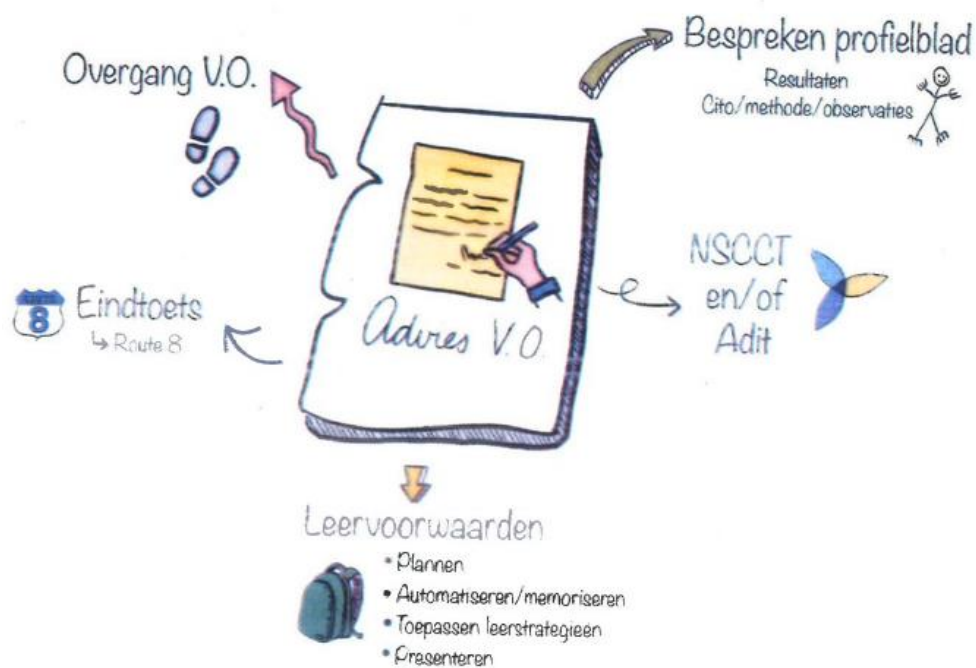 Overgang V.O.
Bespreken profielblad
Resultaten
Cito/methode/observaties
Advies V.O.
NSCCT
en/of
Adit
8
Eindtoets
↳ Route 8
Leervoorwaarden
• Plannen
• Automatiseren/memoriseren
• Toepassen leerstrategieen
• Presenteren